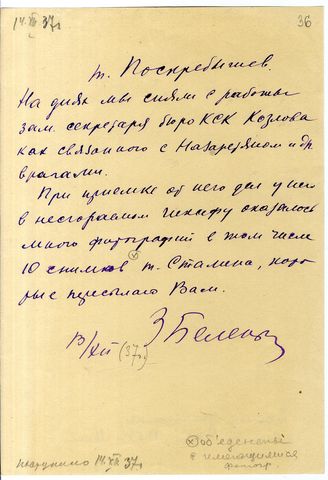 14.XII 37г.
36
т. Поскребышев.
На днях мы сняли с работы
зам. секретаря бюро КСК Козлова
как связанного с Назаретяном и др.
врагами.
При приемке от него дел у него
в несгораемом шкафу оказалось
много фотографий в том числе
10 снимков т. Сталина, кото-
рые пересылаю Вам.
З Беленький
13/XII (37г.)
поступило 14.XII 37г.
объеденены
с имеющимися
фотогр.